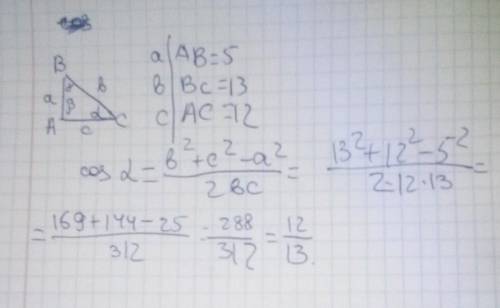 cos
B
a β b
A α C
c
a | AB=5
b | BC=13
c | AC=12
cos α = (b² + c² - a²) / 2bc = (13² + 12² - 5²) / 2·12·13 =
= (169+144-25) / 312 = 288/312 = 12/13.